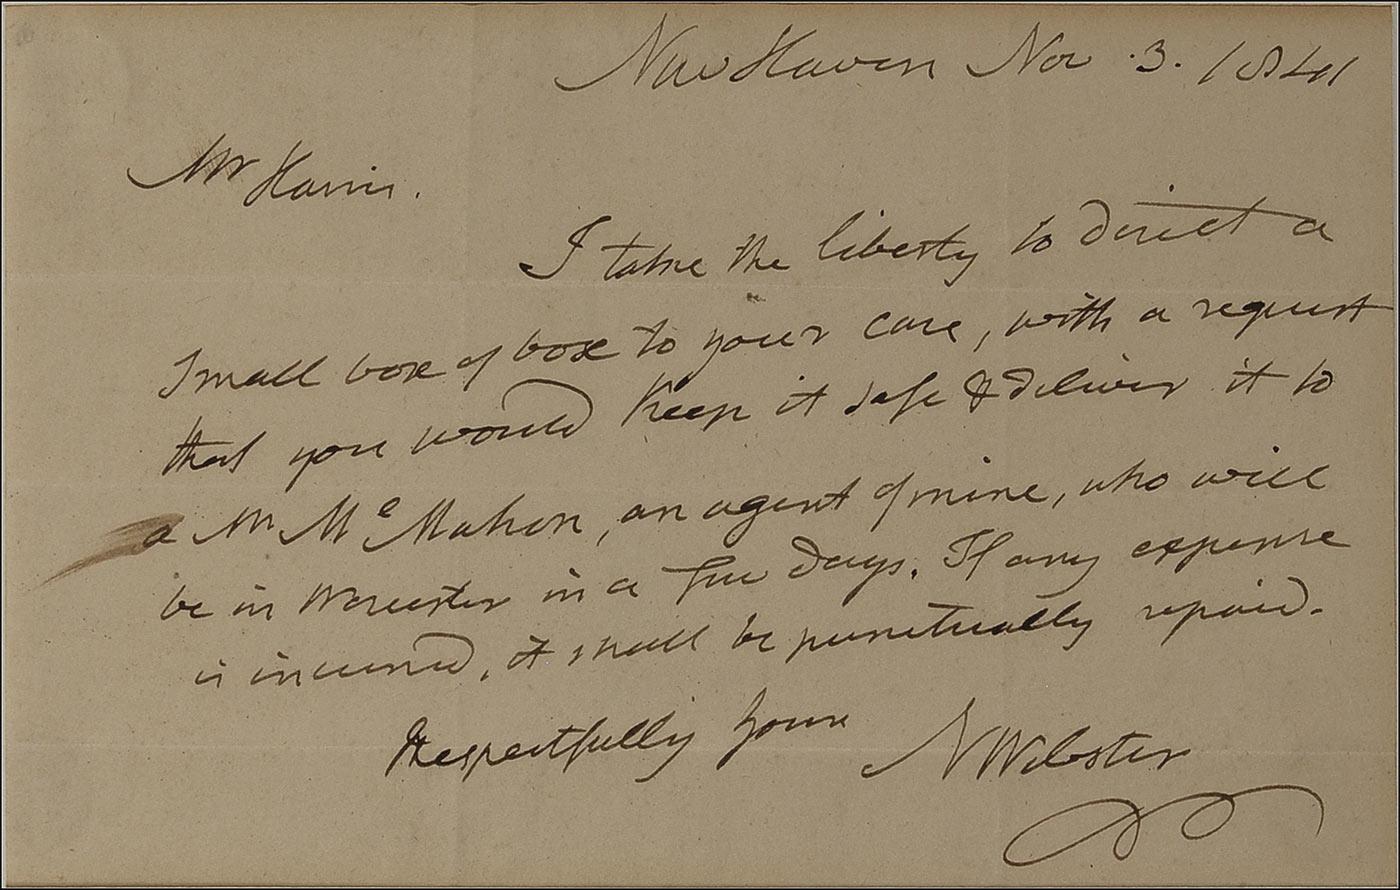 New Haven Nov. 3. 1841
Mr Harris.
I take the liberty to direct a
small box of to your care, with a request
that you would keep it safe & deliver it to
a Mr McMahon, an agent of mine, who will
be in Worcester in a few days. If any expense
is incurred, it shall be punctually repaid.
Respectfully yours N Webster